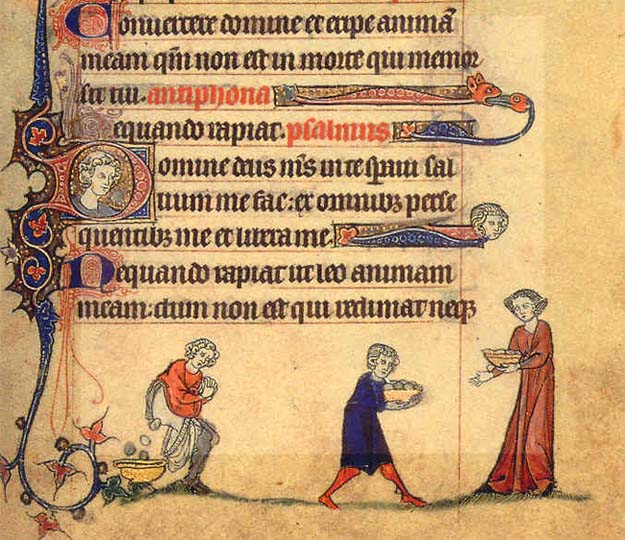 Conuertere domine et eripe animā
meam qm̄ non est in morte qui memor
sit tui. antiphona
Nequando rapiat. psalmus
Domine deus m̄s in te spaui sal
uum me fac: ex omnibꝫ perse
quentibꝫ me et libera me.
Nequando rapiat ut leo animam
meam: dum non est qui redimat neqꝫ